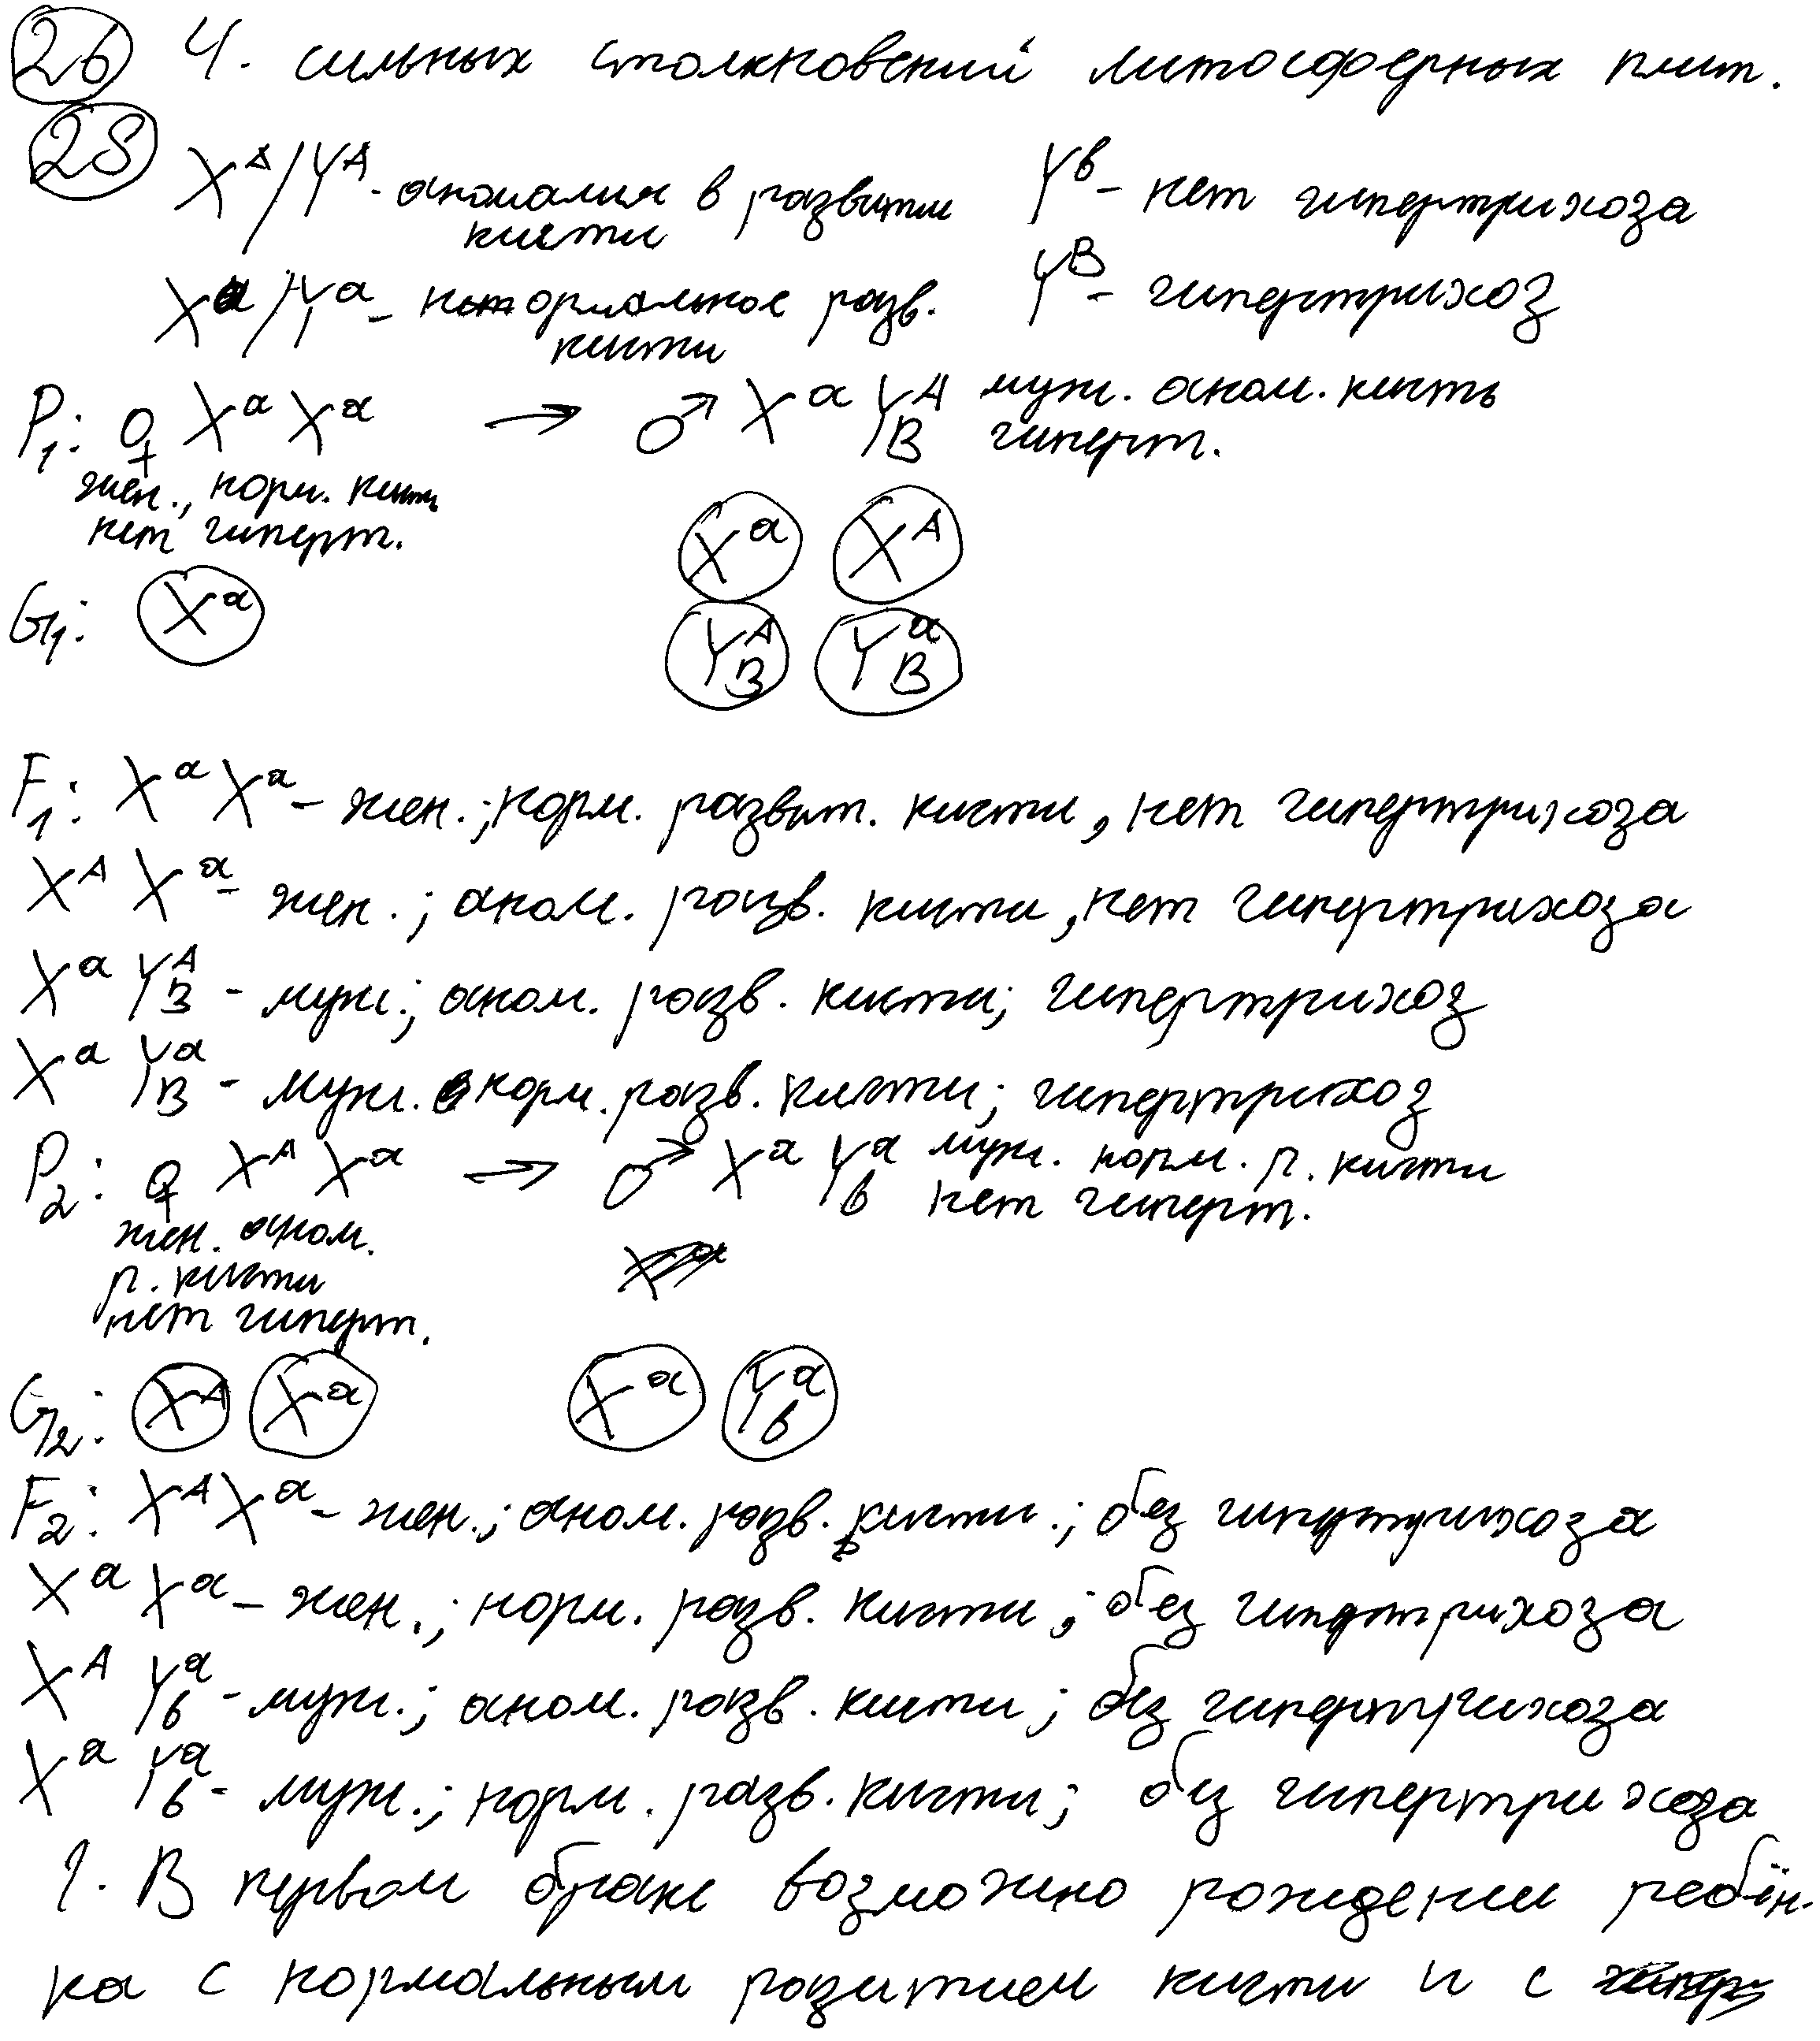 26 4. сильных столкновений литосферных плит.
28 X^A/Y^A - аномалия в развитии кисти Y^в - нет гипертрихоза
X^a/Y^a - нормальное разв. кисти Y^B - гипертрихоз
P1: ♀ X^a X^a → ♂ X^a Y^A_B муж. аном. кисть гиперт.
жен., норм. кисть
нет гиперт.
G1: X^a X^a X^A
Y^A_B Y^a_B
F1: X^a X^a - жен.; норм. развит. кисти, нет гипертрихоза
X^A X^a - жен.; аном. разв. кисти, нет гипертрихоза
X^a Y^A_B - муж.; аном. разв. кисти; гипертрихоз
X^a Y^a_B - муж. норм. разв. кисти; гипертрихоз
P2: ♀ X^A X^a → ♂ X^a Y^a_в муж. норм. р. кисти нет гиперт.
жен. аном.
р. кисти
нет гиперт.
G2: X^A X^a X^a Y^a_в
F2: X^A X^a - жен.; аном. разв. кисти.; без гипертрихоза
X^a X^a - жен.; норм. разв. кисти; без гипертрихоза
X^A Y^a_в - муж.; аном. разв. кисти; без гипертрихоза
X^a Y^a_в - муж.; норм. разв. кисти; без гипертрихоза
1. В первом браке возможно рождении ребён-
ка с нормальным разитием кисти и с